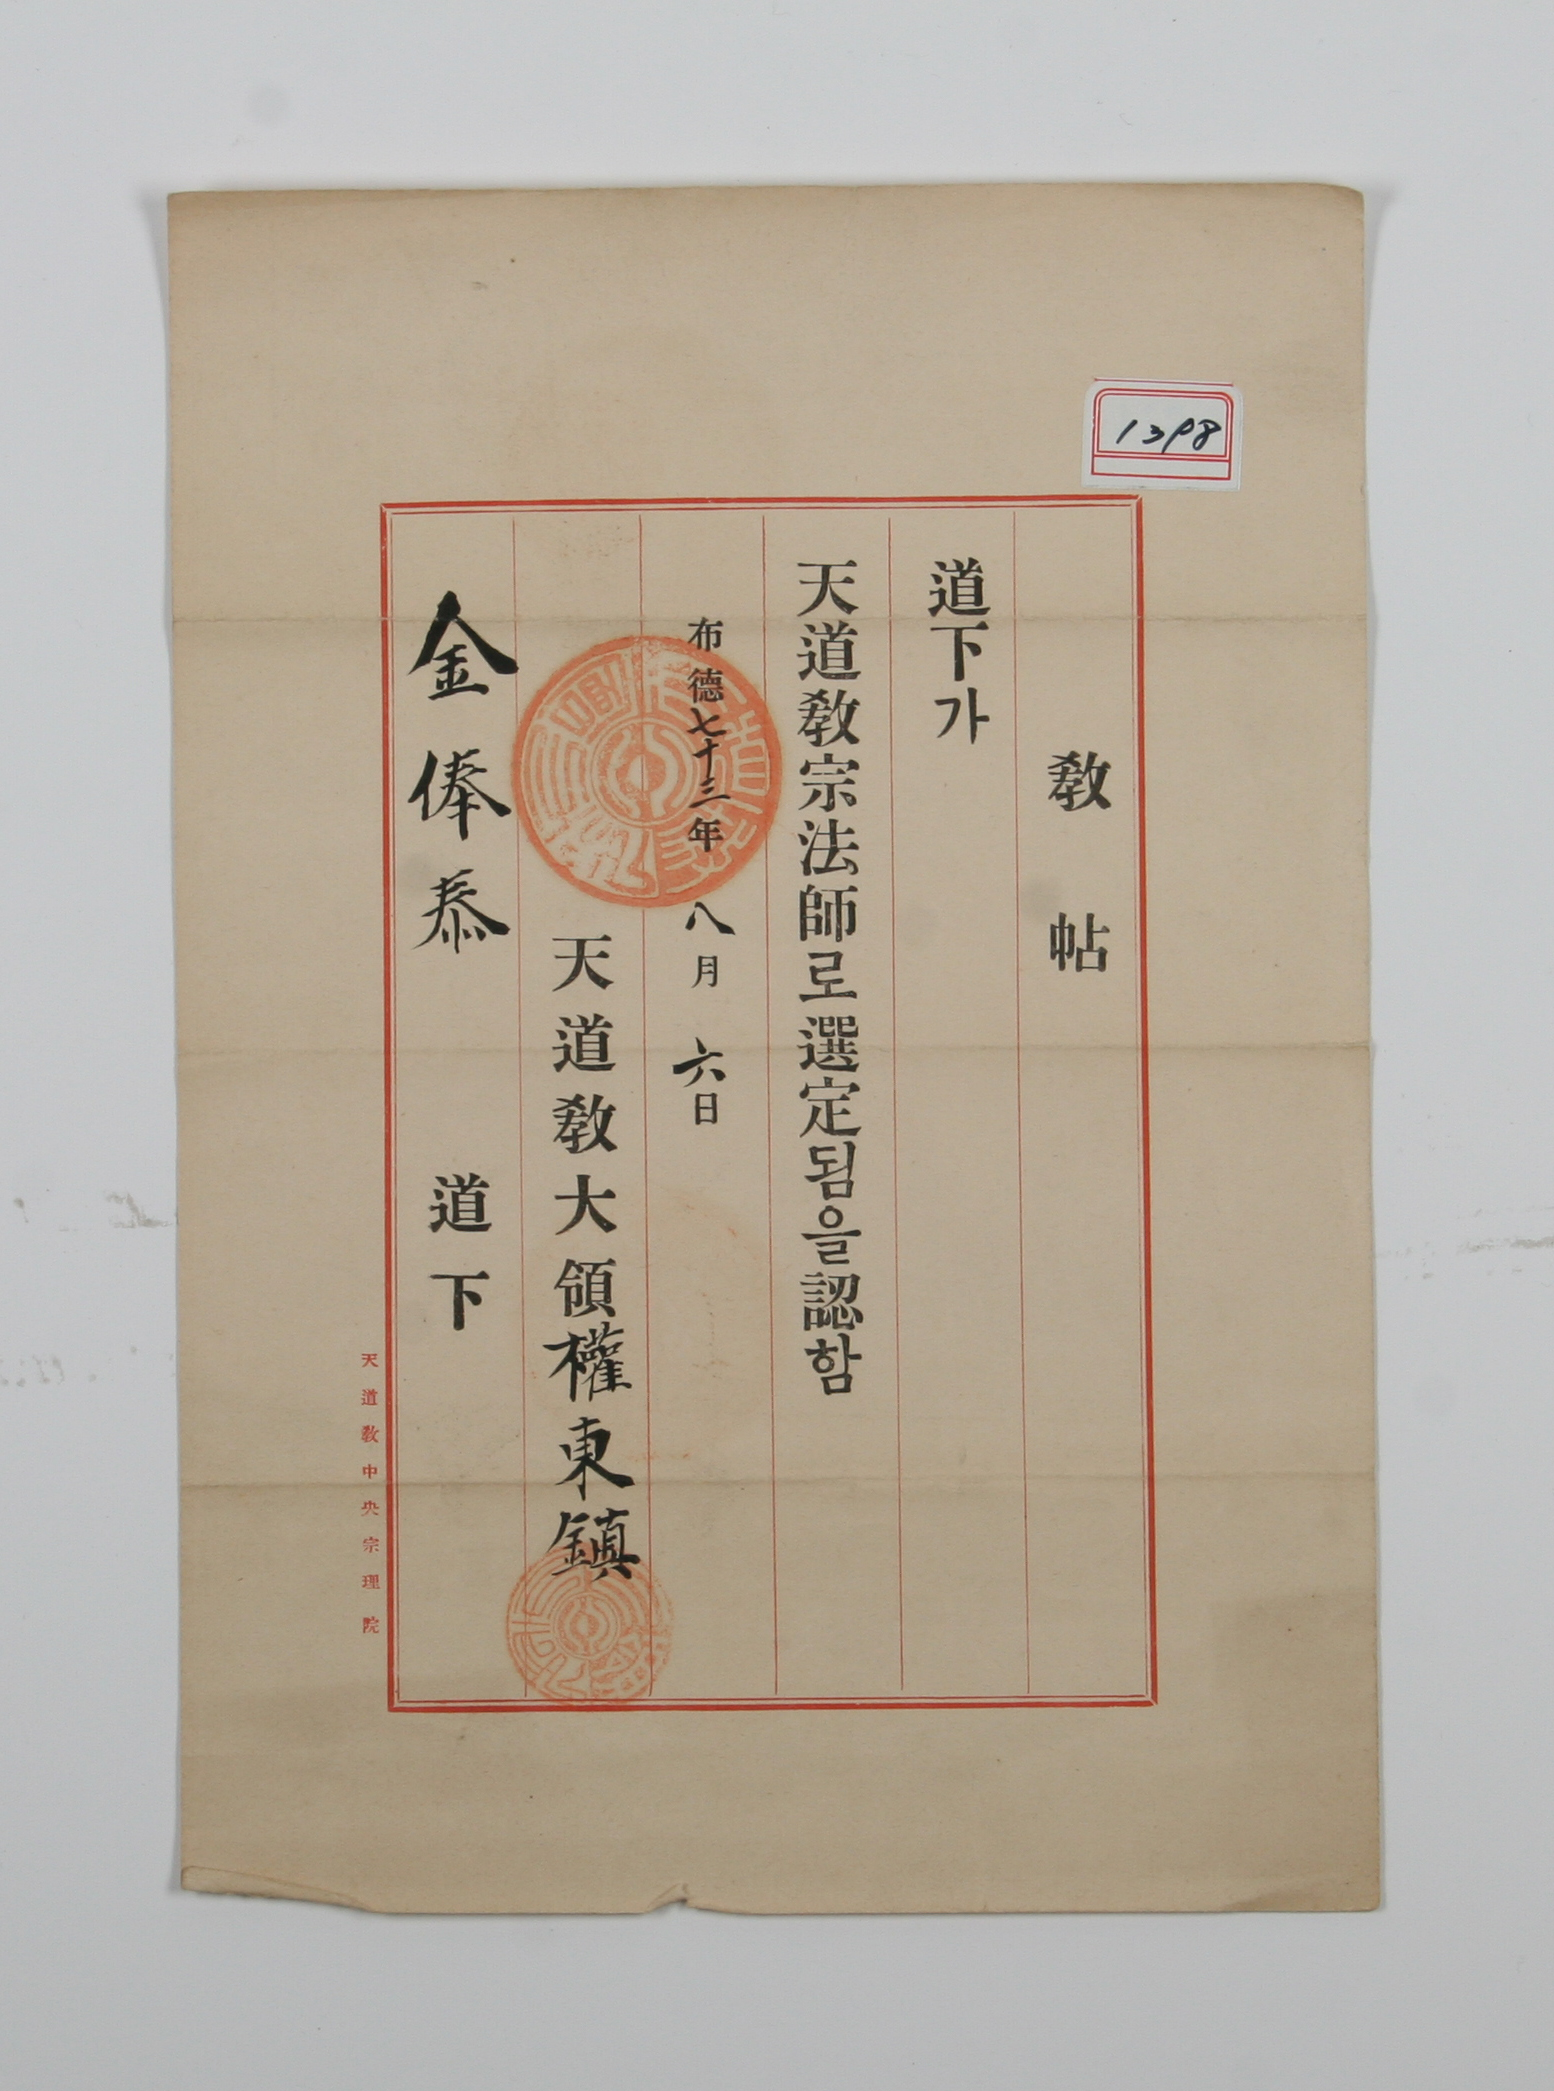 1398
敎帖
道下가
天道敎宗法師로選定됨을認함
布德七十三年八月六日
天道敎大領權東鎮
金俸泰 道下
天道敎中央宗理院